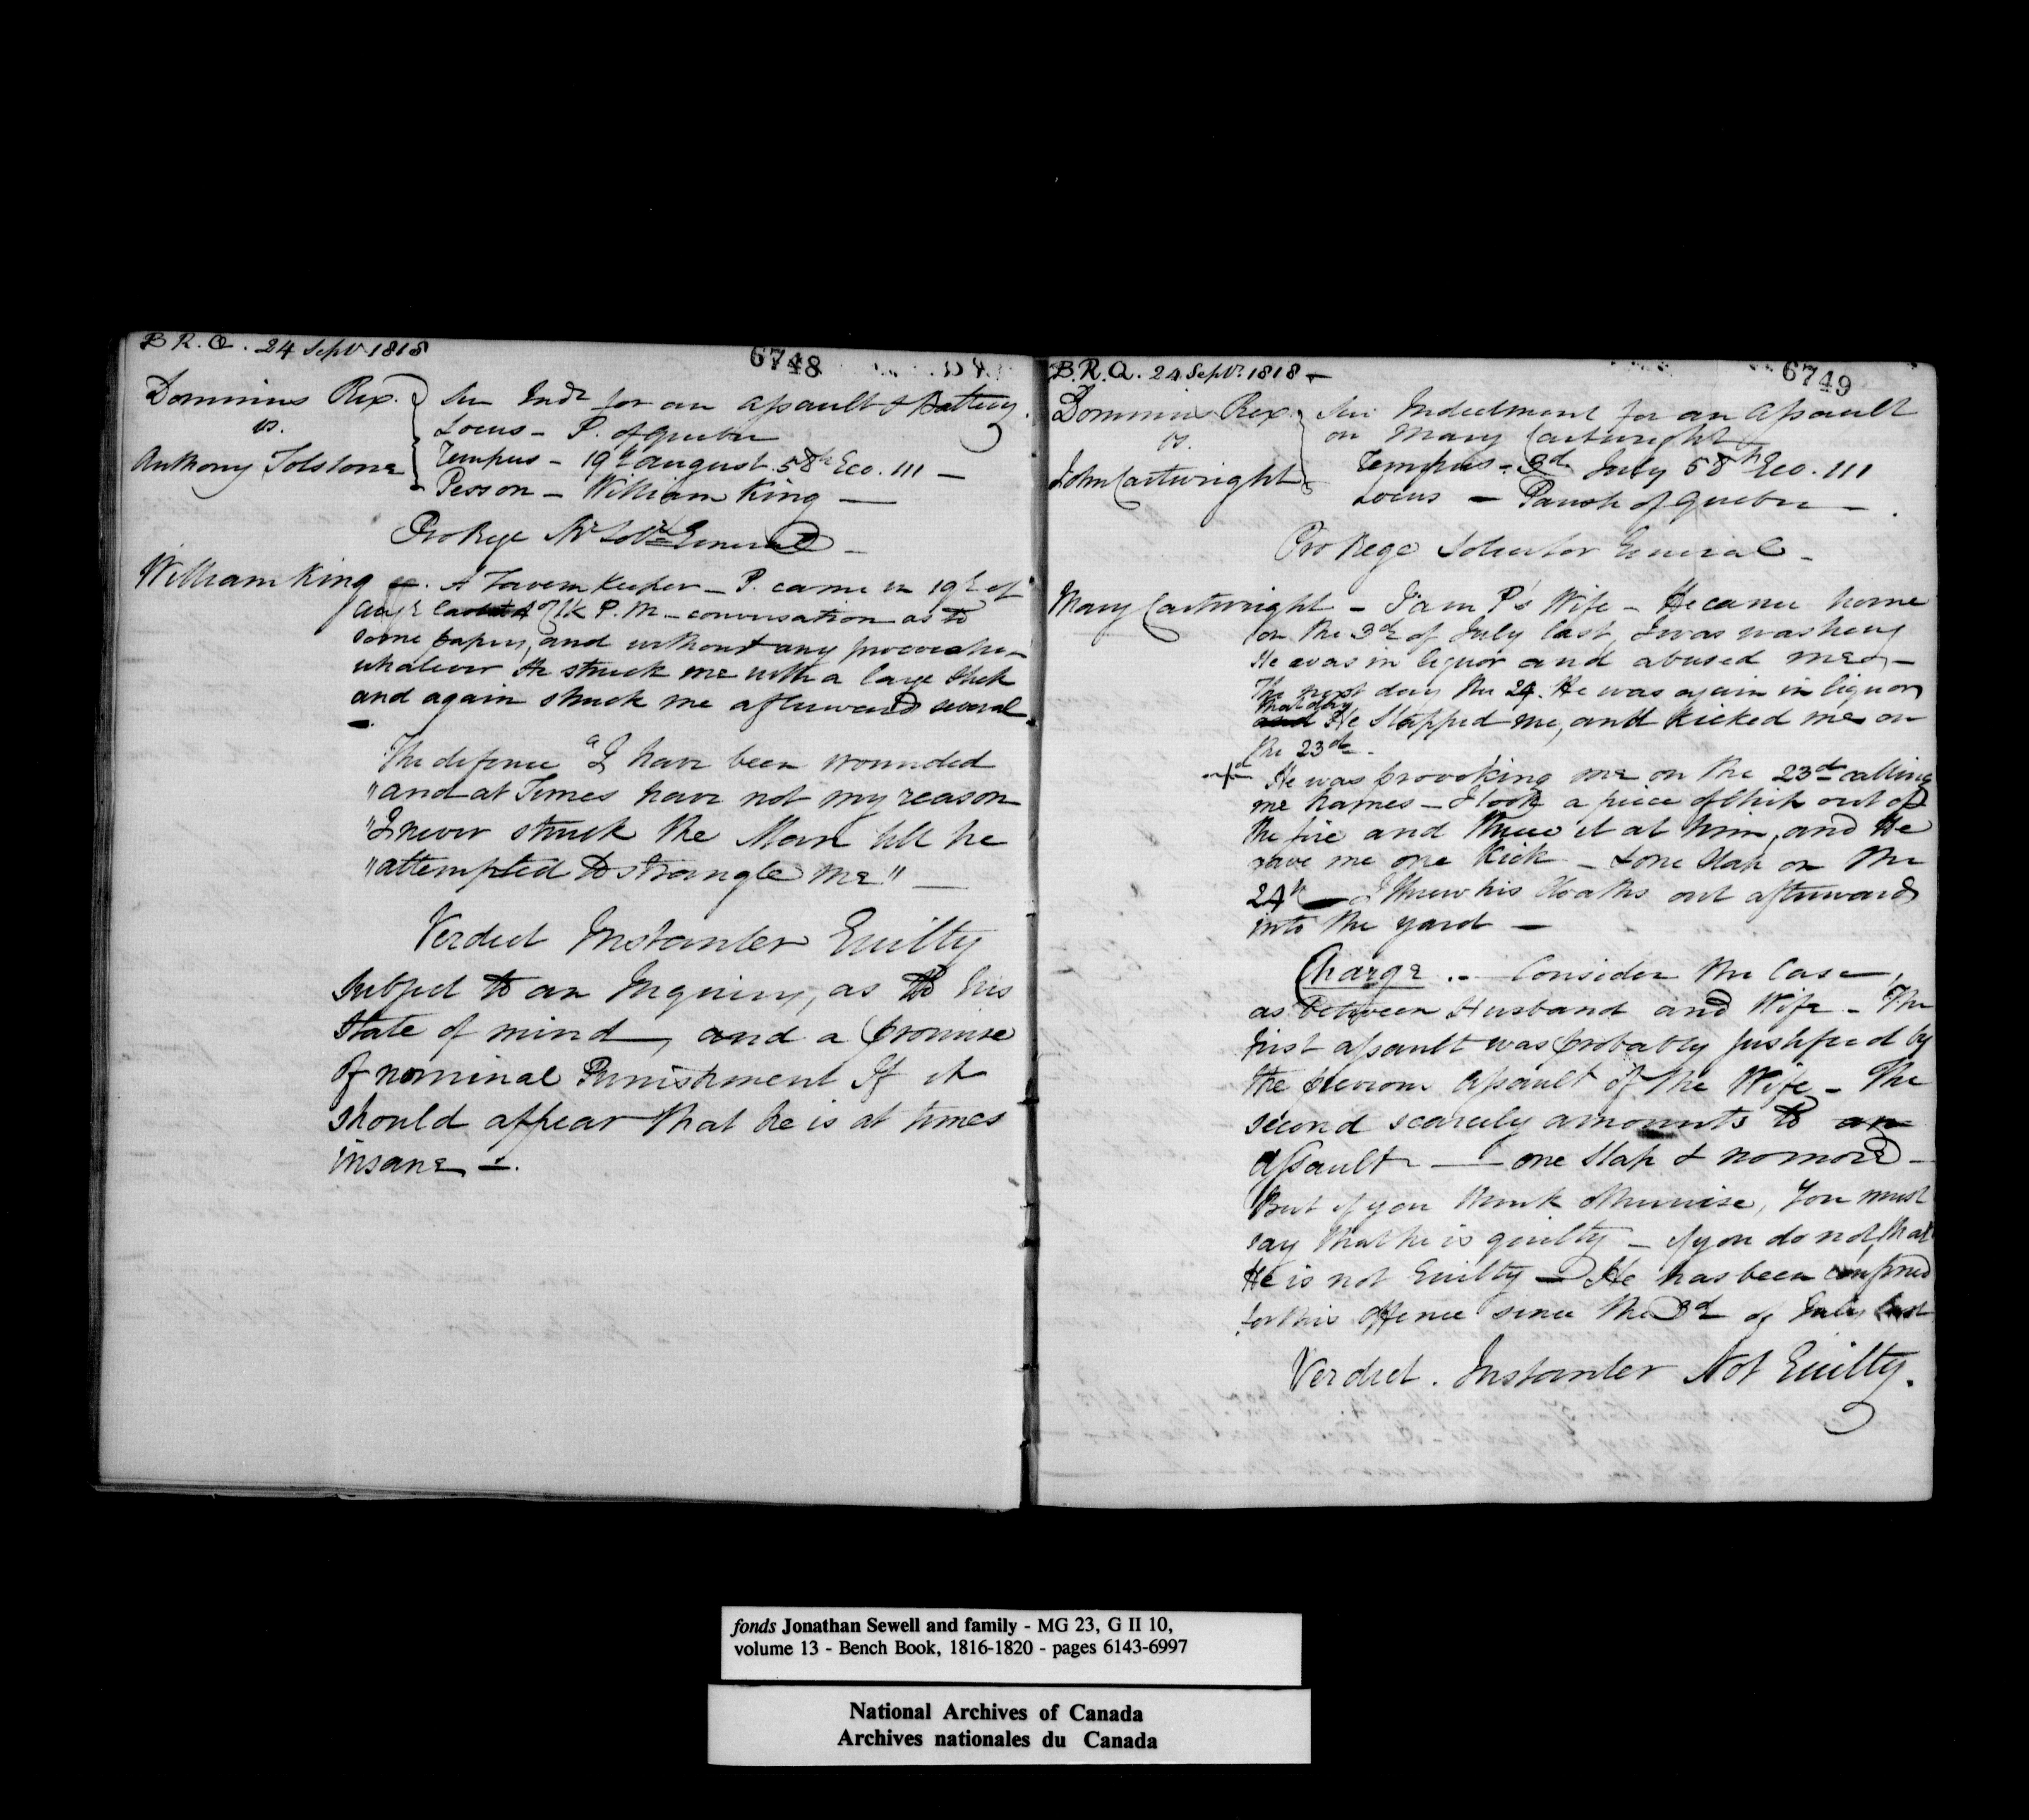 B.R.Q. 24 Septr 1818
6748
Dominus Rex.
vs.
Anthony Tolstone
An Indt for an assault & Battery.
Locus - P. of Quebec
Tempus - 19th August 58th Geo. III -
Person - William King -
Pro Rege Mr Solr General -
William King - A Tavern Keeper - P. came in 19th of
Augt P.M. - conversation as to
some papers, and without any provocation
whatever He struck me with a large stick
and again struck me afterwards several
The defence "I have been wounded
"and at Times have not my reason
"I never struck the Man till he
"attempted to strangle me" -
Verdict Instanter Guilty
subject to an Inquiry, as to his
state of mind, and a promise
of nominal Punishment If it
should appear that he is at times
insane -.
B.R.Q. 24 Septr. 1818 -
6749
Dominus Rex.
vs.
John Cartwright
An Indictment for an Assault
on Mary Cartwright
Tempus - 3d July 58th Geo. III
Locus - Parish of Quebec -
Pro Rege Solicitor General -
Mary Cartwright - I am P's Wife - He came home
on the 3d of July last, I was washing
He was in liquor and abused me -
The next day the 24. He was again in liquor
that day
and He Slapped me, and kicked me on
the 23d -
He was provoking me on the 23d calling
me names - I took a piece of stick out of
the fire and threw it at him, and He
gave me one Kick - & one Slap on the
24th - I threw his cloaths out afterwards
into the yard -
Charge . - Consider the Case,
as between Husband and Wife - The
first assault was probably justified by
the previous assault of the Wife - The
second scarcely amounts to an
assault - one Slap & no more -
But if you think otherwise, You must
say that he is guilty - if you do not, that
He is not Guilty - He has been confined
for this offence since the 3d of July last
Verdict. Instanter Not Guilty.
fonds Jonathan Sewell and family - MG 23, G II 10,
volume 13 - Bench Book, 1816-1820 - pages 6143-6997
National Archives of Canada
Archives nationales du Canada